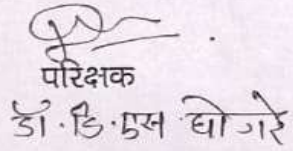 परिक्षक
डॉ. डि. एस घोगरे